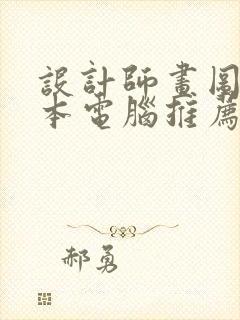 設計師畫圖
本電腦推薦
郝勇